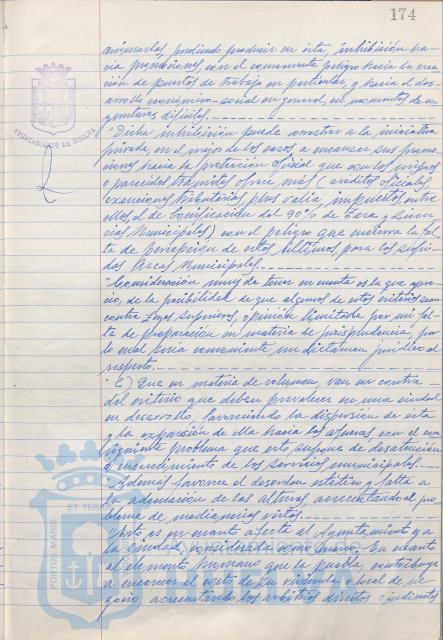 174
animarlas, pudiendo producir en ésta, inhibición ha-
cia promociones, con el consiguiente peligro hacia la crea-
ción de puestos de trabajo en particular, y hacia el des-
arrollo económico-social en general, en momentos de co-
yunturas difíciles.
"Dicha inhibición puede arrastrar a la iniciativa
privada, en el mejor de los casos, a encauzar sus promo-
ciones hacia la protección oficial que con los mismos
o parecidos trámites ofrece más (créditos oficiales,
exenciones tributarias, plus valía, impuestos, entre
ellos, el de bonificación del 90% de Tasa y Licen-
cias Municipales) con el peligro que encierra la fal-
ta de percepción de estos últimos, para las
Arcas Municipales.
"Consideración muy de tener en cuenta es la que apre-
cio, de la posibilidad de que algunos de estos criterios sean
contra Leyes Superiores, opinión limitada por mi fal-
ta de preparación en materia de jurisprudencia, por
lo cual sería conveniente un dictamen jurídico al
respecto.
"E) Que en materia de volumen, van en contra
del criterio que deben prevalecer en una ciudad
en desarrollo, favoreciendo la dispersión de ésta
y la expansión de ella hacia las afueras, con el con-
siguiente problema que esto supone de desatención
o encarecimiento de los servicios municipales.
"Además favorece el desorden estético y falta a
la adecuación de las alturas, acrecentando el pro-
blema de medianerías vistas.
"Esto es en cuanto afecta al Ayuntamiento y a
la Ciudad, considerada como marco. En cuanto
al elemento humano que la puebla, contribuye
a encarecer el costo de su vivienda o local de ne-
gocio, acrecentando los arbitrios directos o indirectos
AYUNTAMIENTO DE HUELVA
PORTUS MARIS ET TERRAE